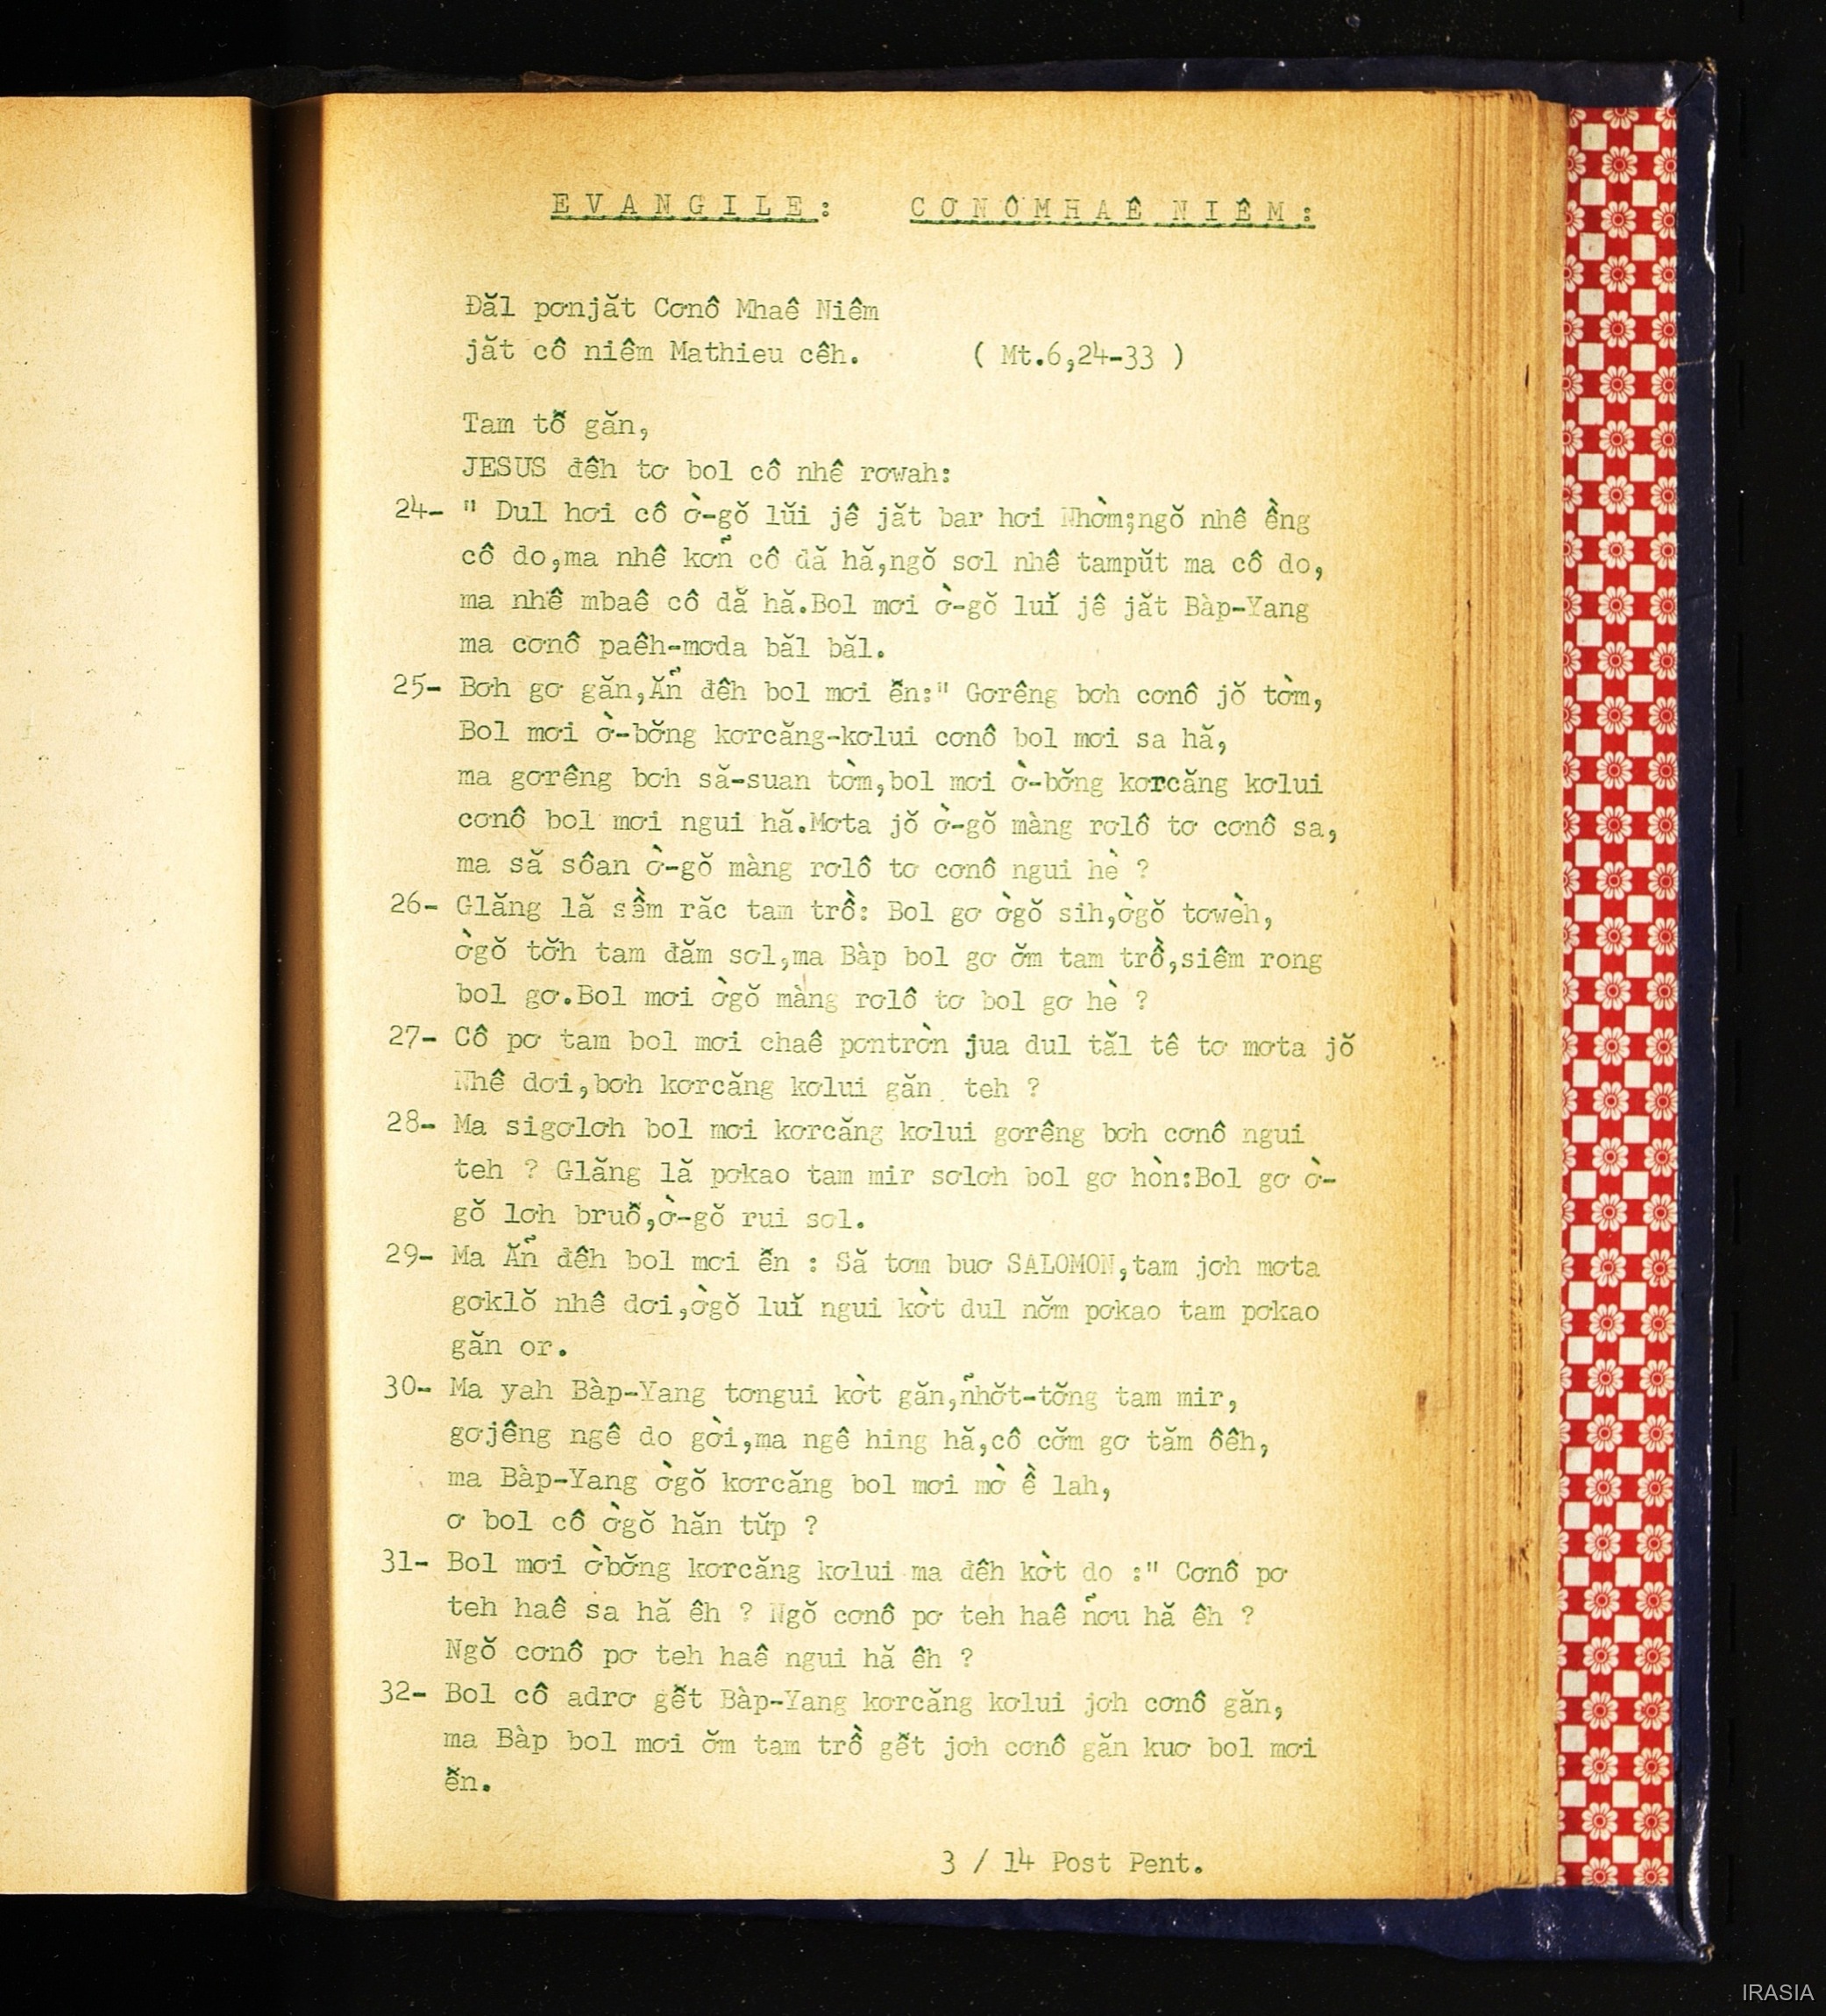 EVANGILE: CƠNÔMHAÊ NIÊM:
Đăl pơnjăt Cơnô Mhaê Niêm
jăt cô niêm Mathieu cêh. ( Mt.6,24-33 )
Tam tô̆ găn,
JESUS đêh tơ bol cô nhê rơwah:
24- " Dul hơi cô ờ-gŏ lŭi jê jăt bar hơi Nhờm;ngŏ nhê ềng
cô do,ma nhê kơn̆̃ cô dă hă,ngŏ sơl nhê tampŭt ma cô do,
ma nhê mbaê cô dă hă.Bol mơi ờ-gŏ luĭ jê jăt Bàp-Yang
ma cơnô paêh-mơda băl băl.
25- Bơh gơ găn,Ăñ đêh bol mơi ê̆n:" Gơrêng bơh cơnô jŏ tờm,
Bol mơi ờ-bơ̆ng kơrcăng-kơlui cơnô bol mơi sa hă,
ma gơrêng bơh să-suan tờm,bol mơi ờ-bơ̆ng kơrcăng kơlui
cơnô bol mơi ngui hă.Mơta jŏ ờ-gŏ màng rơlô tơ cơnô sa,
ma să sôan ờ-gŏ màng rơlô tơ cơnô ngui hè ?
26- Glăng lă sềm răc tam trồ: Bol gơ ờgŏ sih,ờgŏ tơwèh,
ờgŏ tơ̆h tam đăm sơl,ma Bàp bol gơ ơ̆m tam trồ,siêm rong
bol gơ.Bol mơi ờgŏ màng rơlô tơ bol gơ hè ?
27- Cô pơ tam bol mơi chaê pơntròn jua dul tăl tê tơ mơta jŏ
Nhê dơi,bơh kơrcăng kơlui găn teh ?
28- Ma sigơlơh bol mơi kơrcăng kơlui gơrêng bơh cơnô ngui
teh ? Glăng lă pơkao tam mir sơlơh bol gơ hòn:Bol gơ ờ-
gŏ lơh bruô̆,ờ-gŏ rui sơl.
29- Ma Ăñ đêh bol mơi ê̆n : Să tơm buơ SALOMON,tam jơh mơta
gơklŏ nhê dơi,ờgŏ luĭ ngui kờt dul nơ̆m pơkao tam pơkao
găn or.
30- Ma yah Bàp-Yang tơngui kờt găn,ñhơ̆t-tơ̆ng tam mir,
gơjêng ngê do gời,ma ngê hing hă,cô cơ̆m gơ tăm ôêh,
ma Bàp-Yang ờgŏ kơrcăng bol mơi mờ ề lah,
ơ bol cô ờgŏ hăn tŭp ?
31- Bol mơi ờbơ̆ng kơrcăng kơlui ma đêh kờt do :" Cơnô pơ
teh haê sa hă êh ? Ngŏ cơnô pơ teh haê ñơu hă êh ?
Ngŏ cơnô pơ teh haê ngui hă êh ?
32- Bol cô adrơ gê̆t Bàp-Yang kơrcăng kơlui jơh cơnô găn,
ma Bàp bol mơi ơ̆m tam trồ gê̆t jơh cơnô găn kuơ bol mơi
ê̆n.
3 / 14 Post Pent.
IRASIA